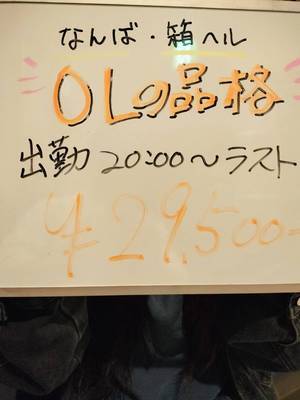 なんば・箱ヘル
OLの品格
出勤 20:00〜ラスト
¥29,500-